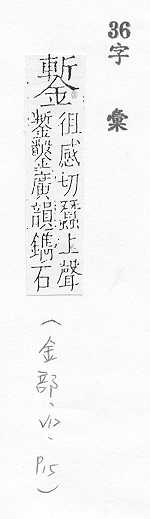 36字彙
鏨徂感切蠶上聲
鏨鑿廣韻鐫石
(金部、V12、P15)